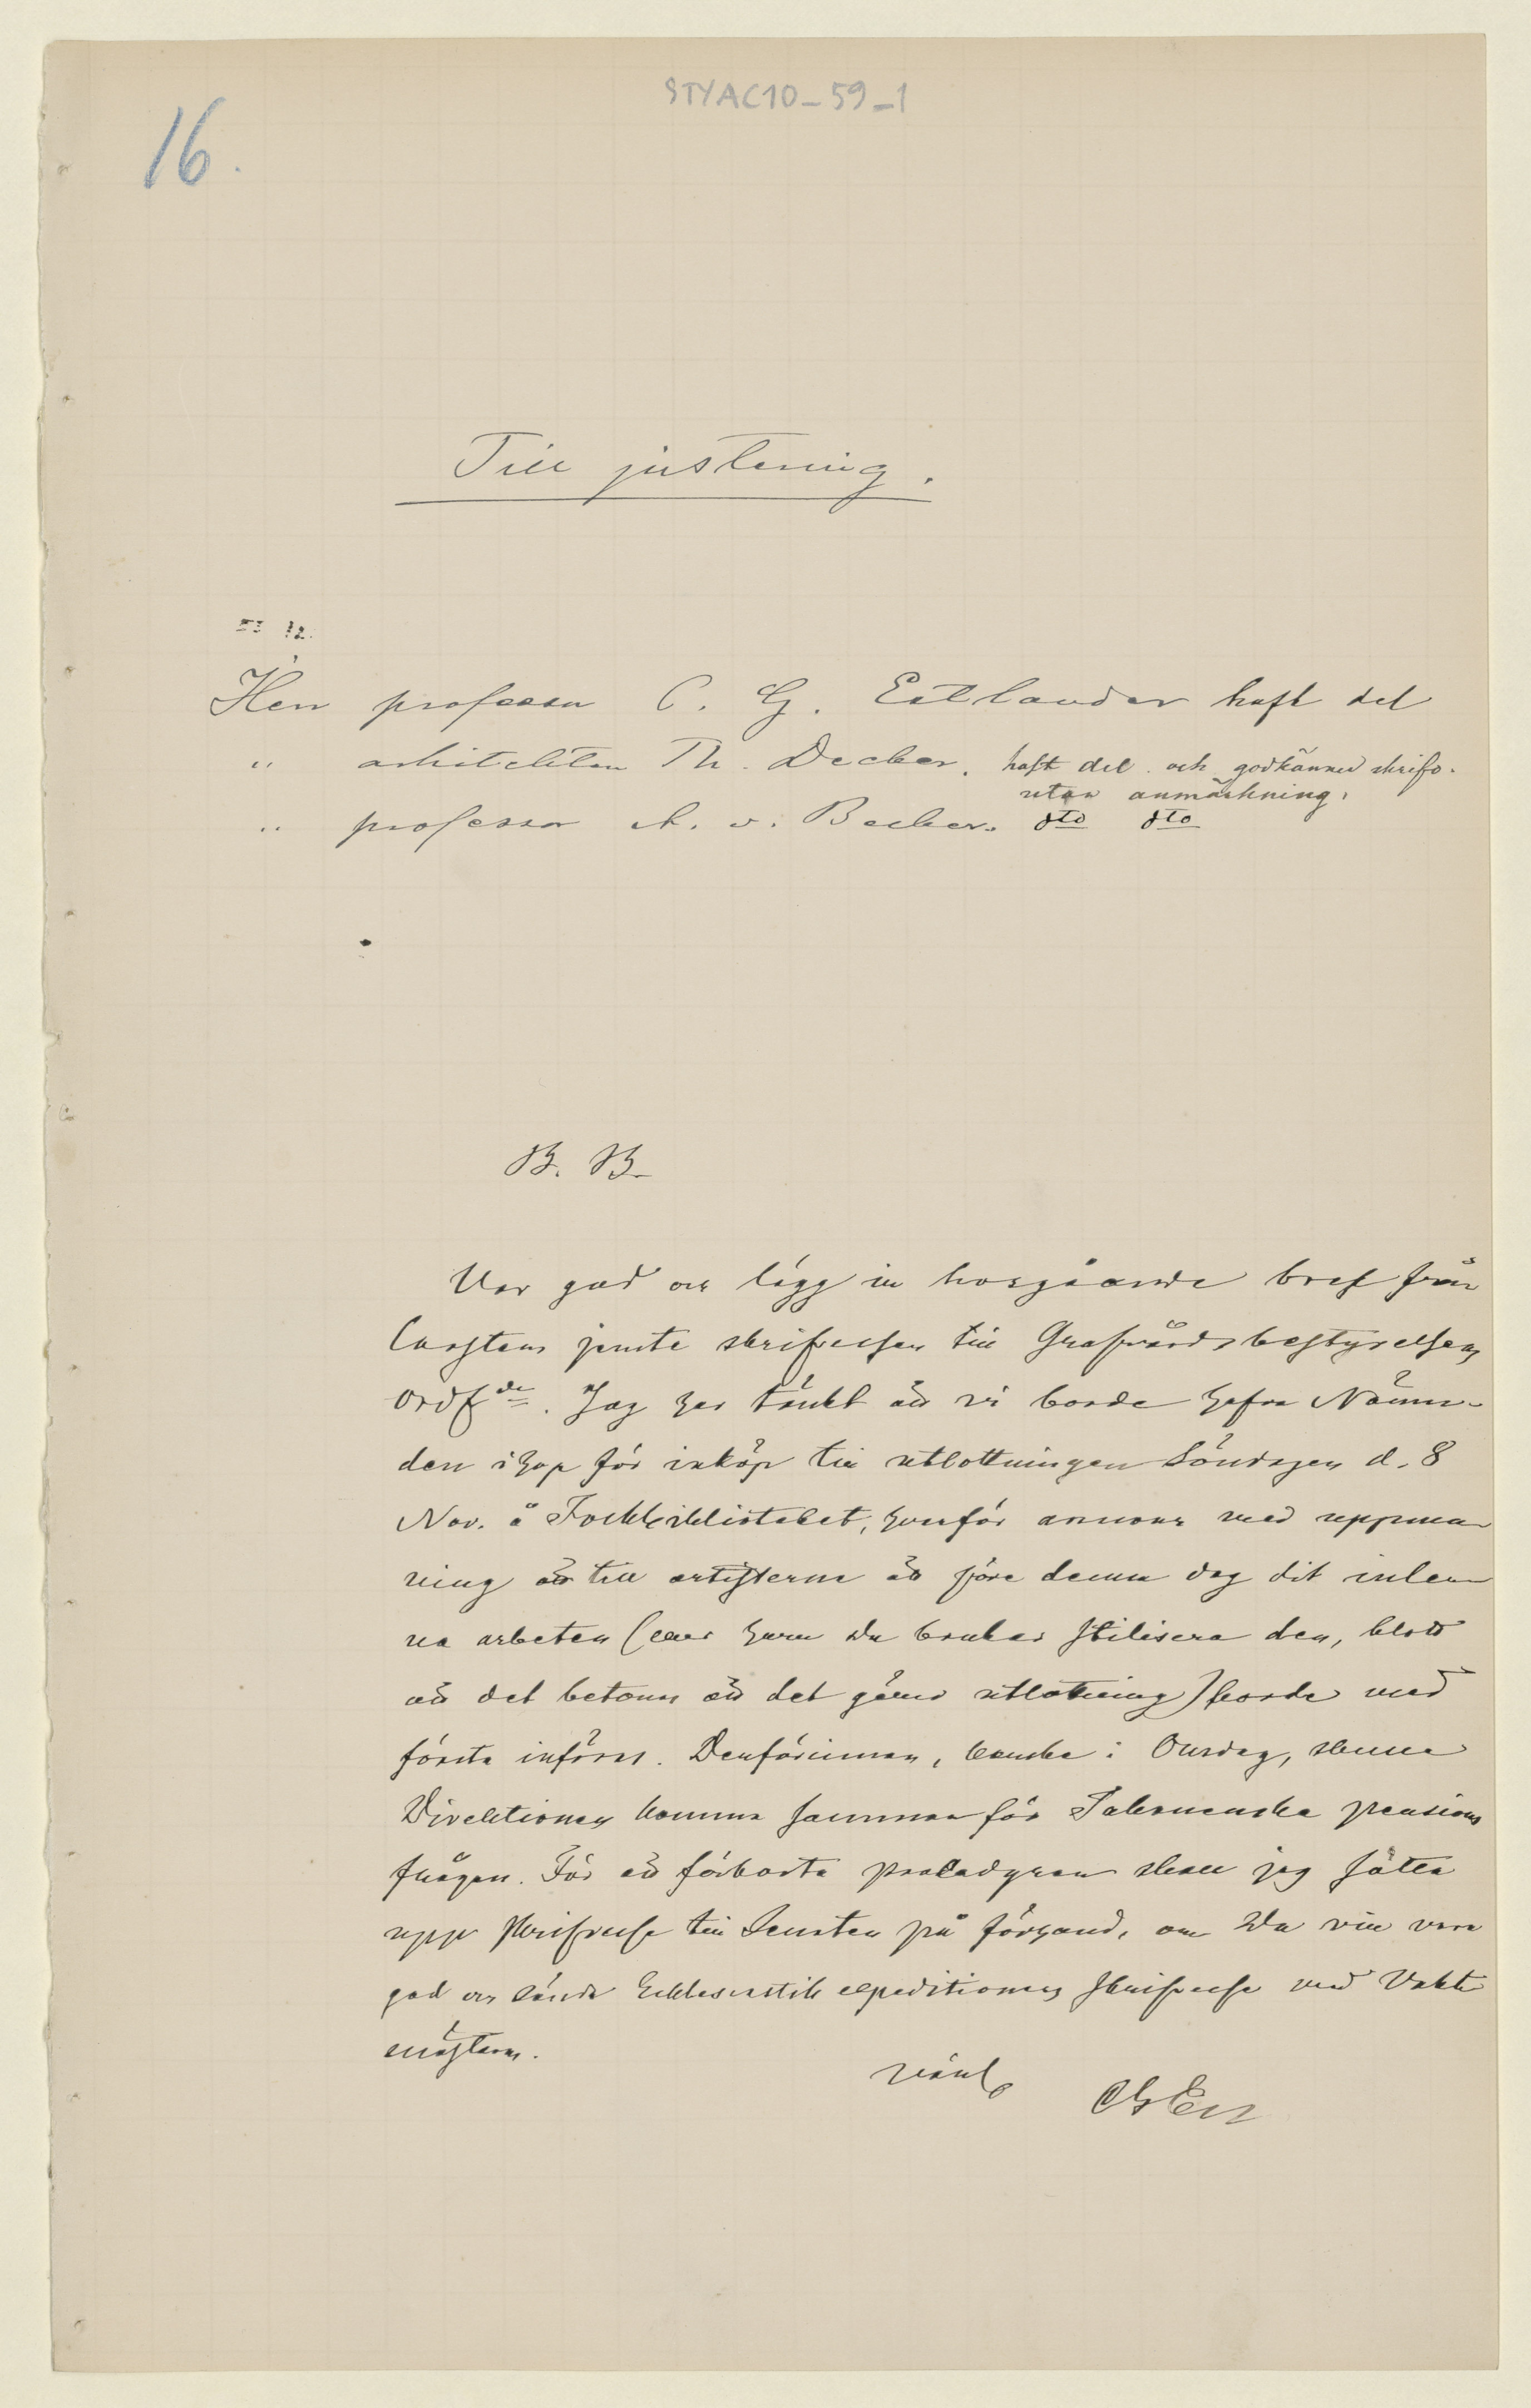 STYAC10_59_1
16.
Till justering.
Herr professor C. G. Estlander haft del
" arkitekten Th. Decker. haft del och godkänner skrifv.
utan anmärkning.
" professor A. v. Becker. dto dto
B. B.
Var god och lägg in hosgående bref från
Carstens jemte skrifvelsen till Grafvårdsbestyrelsens
Ordf de. Jag har tänkt att vi borde hafva Nämn-
den ihop för inköp till utlottningen Söndagen d. 8
Nov. å Folkbiblioteket, hvarför annons med uppma
ning att till artisterna att före denna dag dit inlem
na arbeten (eller huru du brukar stilisera den, blott
att det betonas att det gäller utlottning) borde med
första införas. Denförinnan, kanske i Onsdag, skulle
Direktionen komma samman för Takanenska pensions
frågan. För att förkorta proceduren skall jag sätta
upp skrifvelse till Senaten på förhand, om Du vill vara
god och sända Ecklesiastik expeditionens skrifvelse med Vakt
mästarn.
vänl
CGEsr